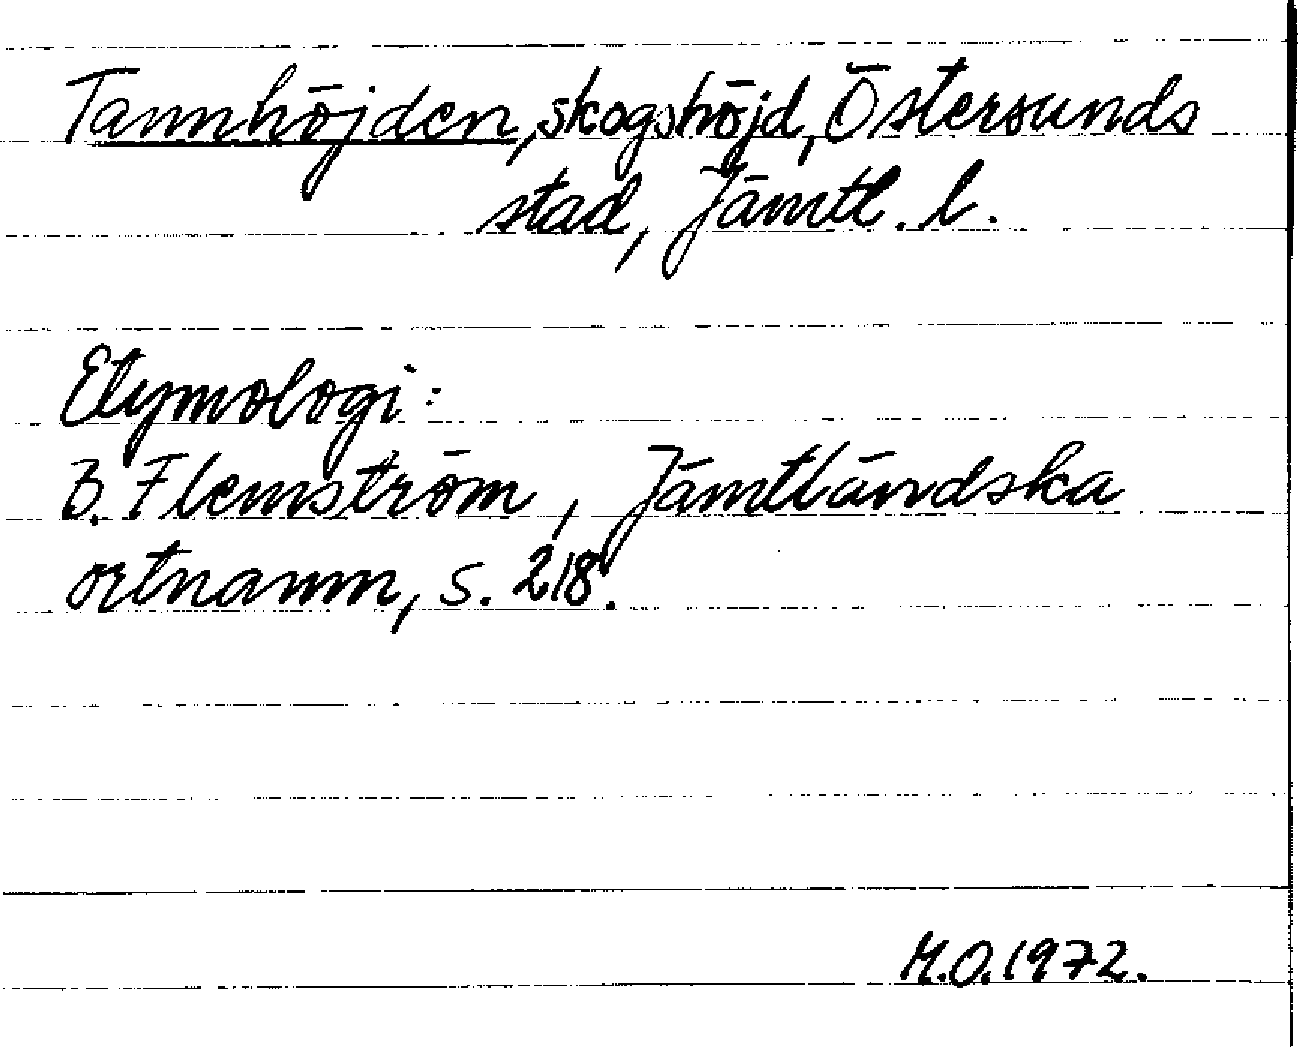 Tannhöjden, skogshöjd, Östersunds
stad, Jämtl. l.
Etymologi:
B. Flemström, Jämtländska
ortnamn, s. 218.
M.O. 1972.